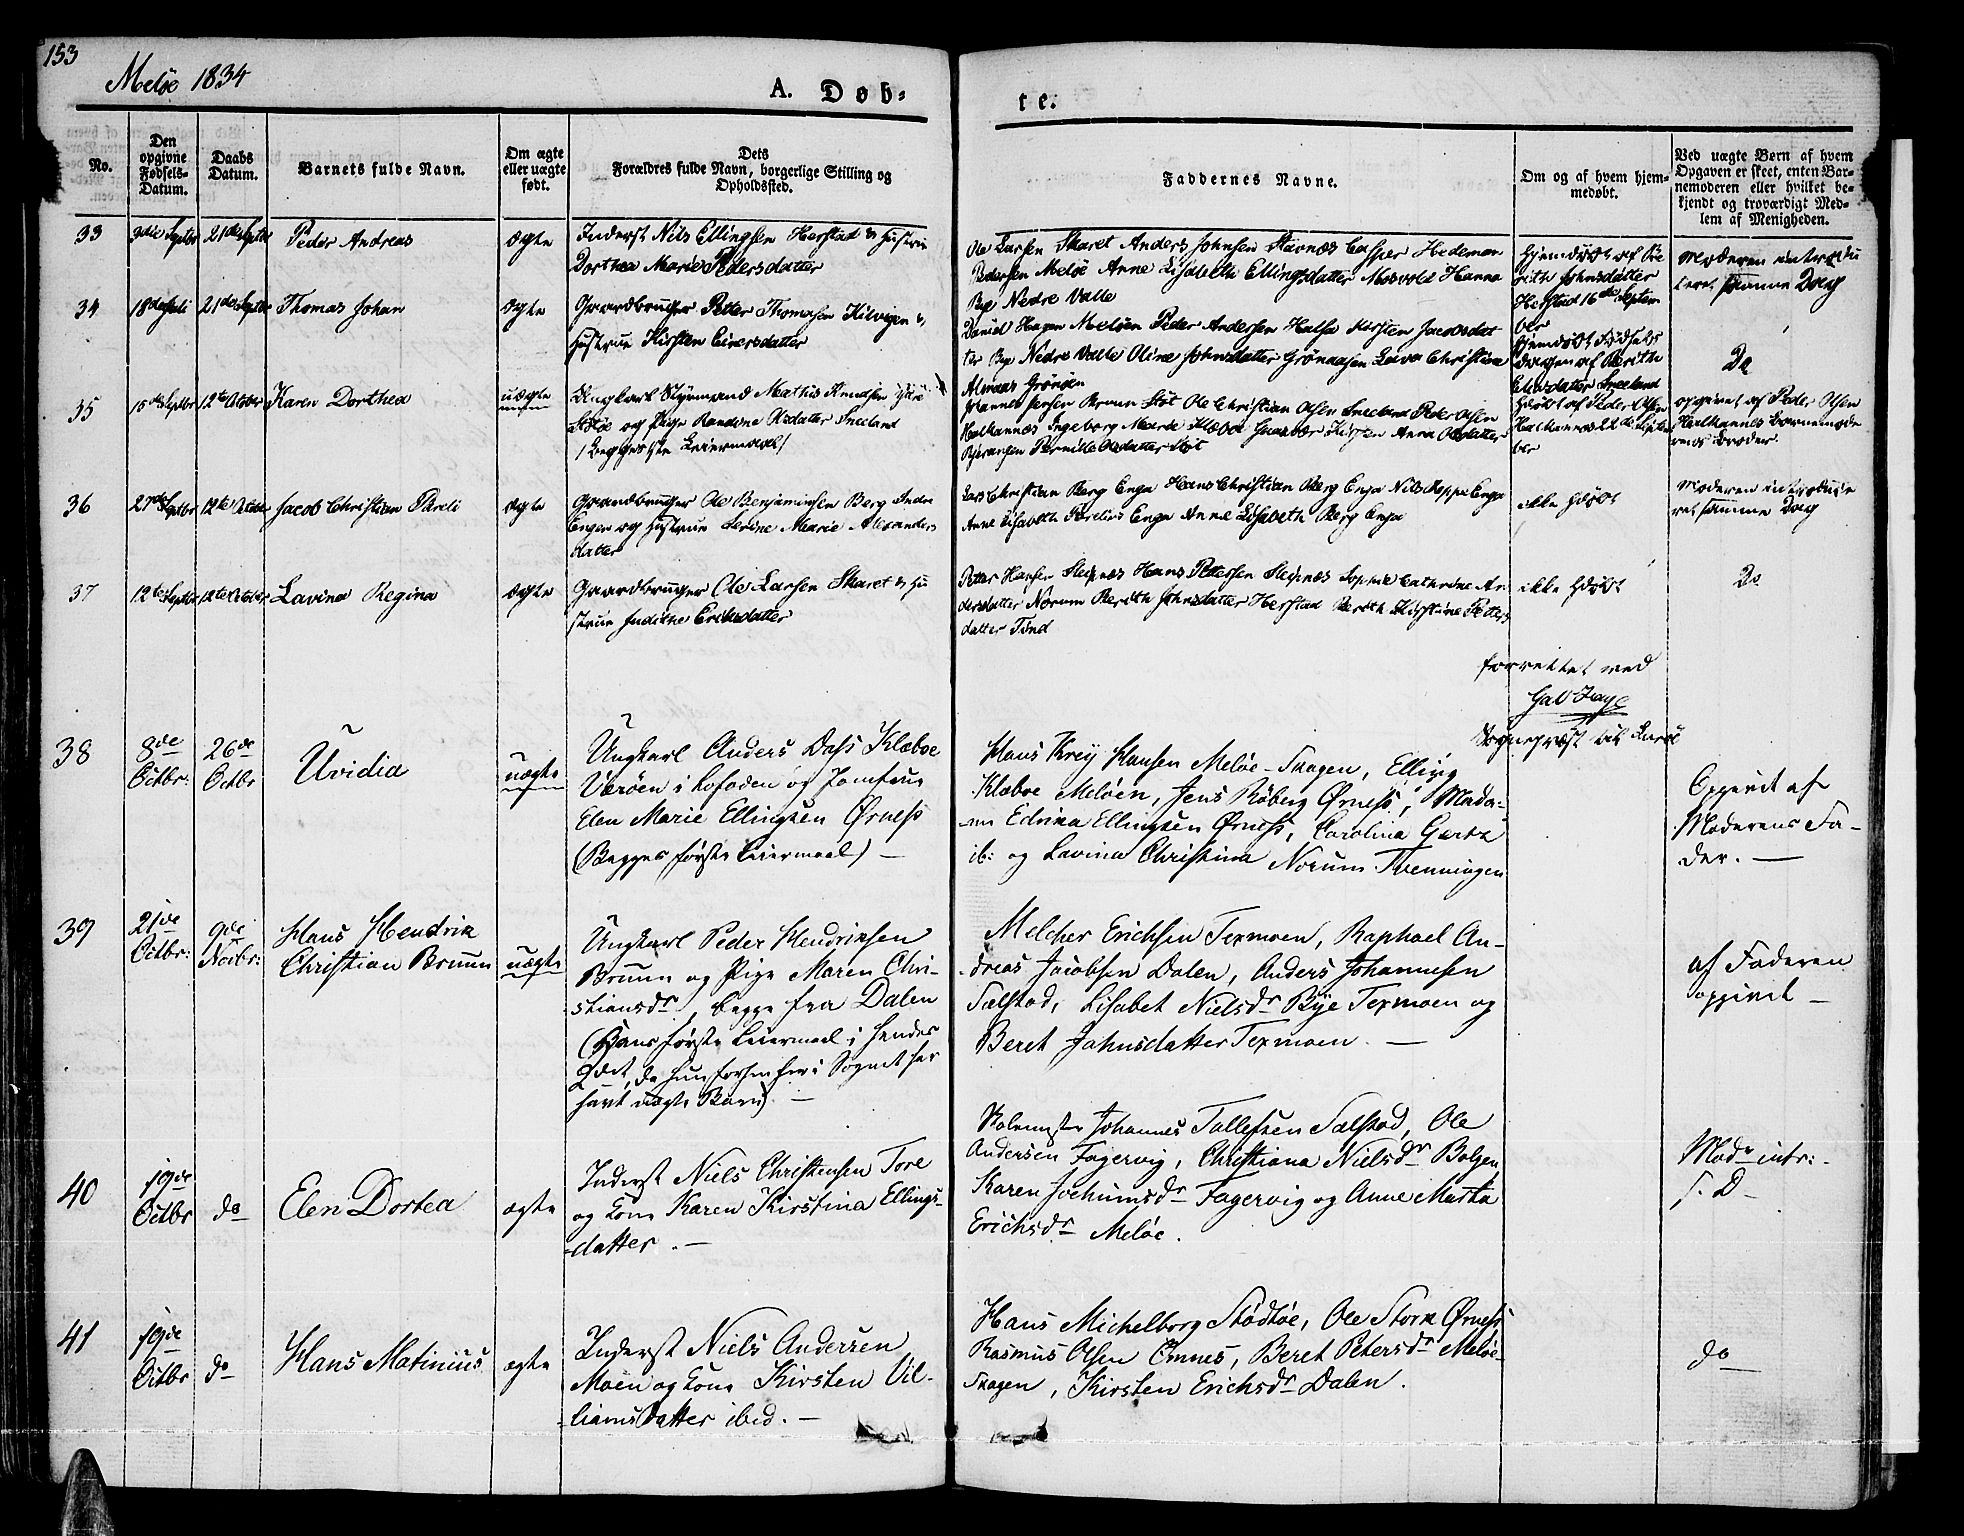 153
Meløe 1834
A. Døb-
te.
No.
Den
opgivne
Fødsels-
Datum.
Daabs
Datum.
Barnets fulde Navn.
Om ægte
eller uægte
født.
Dets
Forældres fulde Navn, borgerlige Stilling og
Opholdssted.
Faddernes Navne.
Om og af hvem hjem-
medøbt.
Ved uægte Børn af hvem
Opgaven er skeet, enten Bar-
nemoderen eller hvilket be-
kjendt og troværdigt Med-
lem af Menigheden.
33
21de Septbr
Peder Andreas
ægte
Inderst Nils Ellingsen Herstad & Hustrue
Dorthea Marie Pedersdatter
Ole Larsen Skaret Anders Johnsen Støvnæs Casper Hedeman
Pedersen Meløe Anne Lisabeth Ellingsdatter Mosvold Hanna
Bye Nedre Valle
Hjemdøbt af Be
rith Johnsdatter
Herstad 16de Septem
ber
Moderen introdu
ceret samme Dag
34
18de Juli
21de Septbr
Thomas Johan
ægte
Gaardbruger Peder Thomasen Kilvigen &
Hustrue Kirsten Einersdatter
Daniel Hagen Meløen Peder Andersen Halsa Kirsten Jacobsdat
ter Bye Nedre Valle Oline Johnsdatter Grønaasen Lava Christina
Grønøen
Hjemdøbt Fødsels
dagen af Berithe
Eliasdatter Sneeland
Do
35
12te October
Karen Dorthea
uægte
Ungkarl Styrmand Mathis Knudsen Ytre
og Pige Randine Olsdatter Sneeland
(Begges 1ste Leiermaal)
Johannes Jensen Bruun Støt Ole Christian Olsen Sneeland Peder Olsen
Halkannæs Ingeborg Marie Klæboe Kirsten Anna Olsdatter
Bjerangen Pernille Olsdatter Støt
Hjdøbt af Peder Olsen
Halkannæs 22de Septem
ber
opgivet af Peder Olsen
Halkannæs Barnemode
rens Broder.
36
27de Septbr
12te October
Jacob Christian Pareli
ægte
Gaardbruger Ole Benjaminsen Berg Indre
Engen og Hustrue Serine Marie Alexanders
datter
Lars Christian Berg Enga Hans Christian Berg Enga Nils Koppe Enga
Anne Lisabeth Parelius Enga Anne Lisabeth Berg Enga
ikke Hdøbt
Moderen introduce
ret samme Dag
37
12te Septbr
12te October
Lavina Regina
ægte
Gaardbruger Ole Larsen Skaret & Hu
strue Indiane Eriksdatter
Petter Hansen Sleipnæs Hans Pettersen Sleipnæs Sophie Cathrine An
dersdatter Norum Berith Johnsdatter Herstad Berith Kirstine Petters
datter Tind
ikke Hdøbt
Do
forrettet ved
Sognepræst til
38
8de
Octbr:
26de
Octbr
Uvidia
uægte
Ungkarl Anders Dass Klæboe
Værøen i Lofoden og Jomfrue
Elen Marie Ellingsen Ørness
(Begges første Leiermaal) —
Hans Krey Hansen Meløe-Skagen, Elling
Klæboe Meløen, Jens Röberg Ørness, Mada-
-me Edvina Ellingsen Ørness, Carolina Gartz
ib: og Lavina Christina Norum Tvenningen
Opgivet af
Moderens Fa-
der. —
39
21de
Octbr:
9de
Novbr:
Hans Hendrik
Christian Bruun
uægte
Ungkarl Peder Hendriksen
Bruun og Pige Maren Chri-
stiansdr, begge fra Dalen
(Hans første Leiermaal i hendes
2det, da hun forhen her i Sognet har
havt uægte Barn). —
Melcher Erichsen Texmoen, Raphael An-
-dreas Jacobsen Dalen, Anders Johannesen
Sælstad, Lisabet Nielsdr Bye Texmoen og
Beret Jahnsdatter Texmoen. —
af Faderen
opgivet —
40
19de
Octbr
do
Elen Dortea
ægte
Inderst Niels Christensen Tore
og Kone Karen Kirstina Ellings-
-datter. —
Skolemester Johannes Tollefsen Sælstad, Ole
Andersen Fagervig, Christiana Nielsdr Bolgen
Karen Jochumsdr Fagervig og Anne Marta
Erichsdr Meløe.
Modr intr:
s. D—
41
19de
Octbr
do
Hans Matinius
ægte
Inderst Niels Andersen
Moen og Kone Kirsten Vil-
-liamsdatter ibid. —
Hans Michelborg Stødtøe, Ole Storm Ørness
Rasmus Olsen Omnes, Beret Petersdr Meløe-
Skagen, Kirsten Erichsdr Dalen.
do